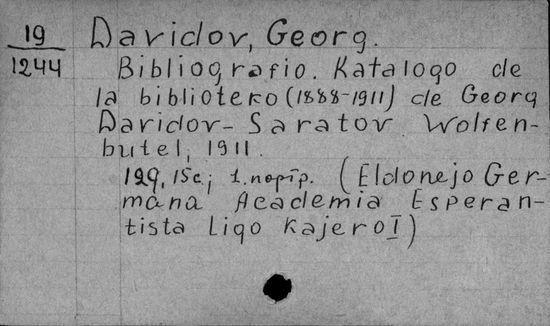 19
1244
Davidov, Georg.
Bibliografio. Katalogo de
la biblioteko (1888-1911) de Georg
Davidov-Saratov Wolfen-
butel, 1911.
129, 15c; 1. портр. (Eldonejo Ger-
mana Academia Esperan-
tista Ligo Kajero I)